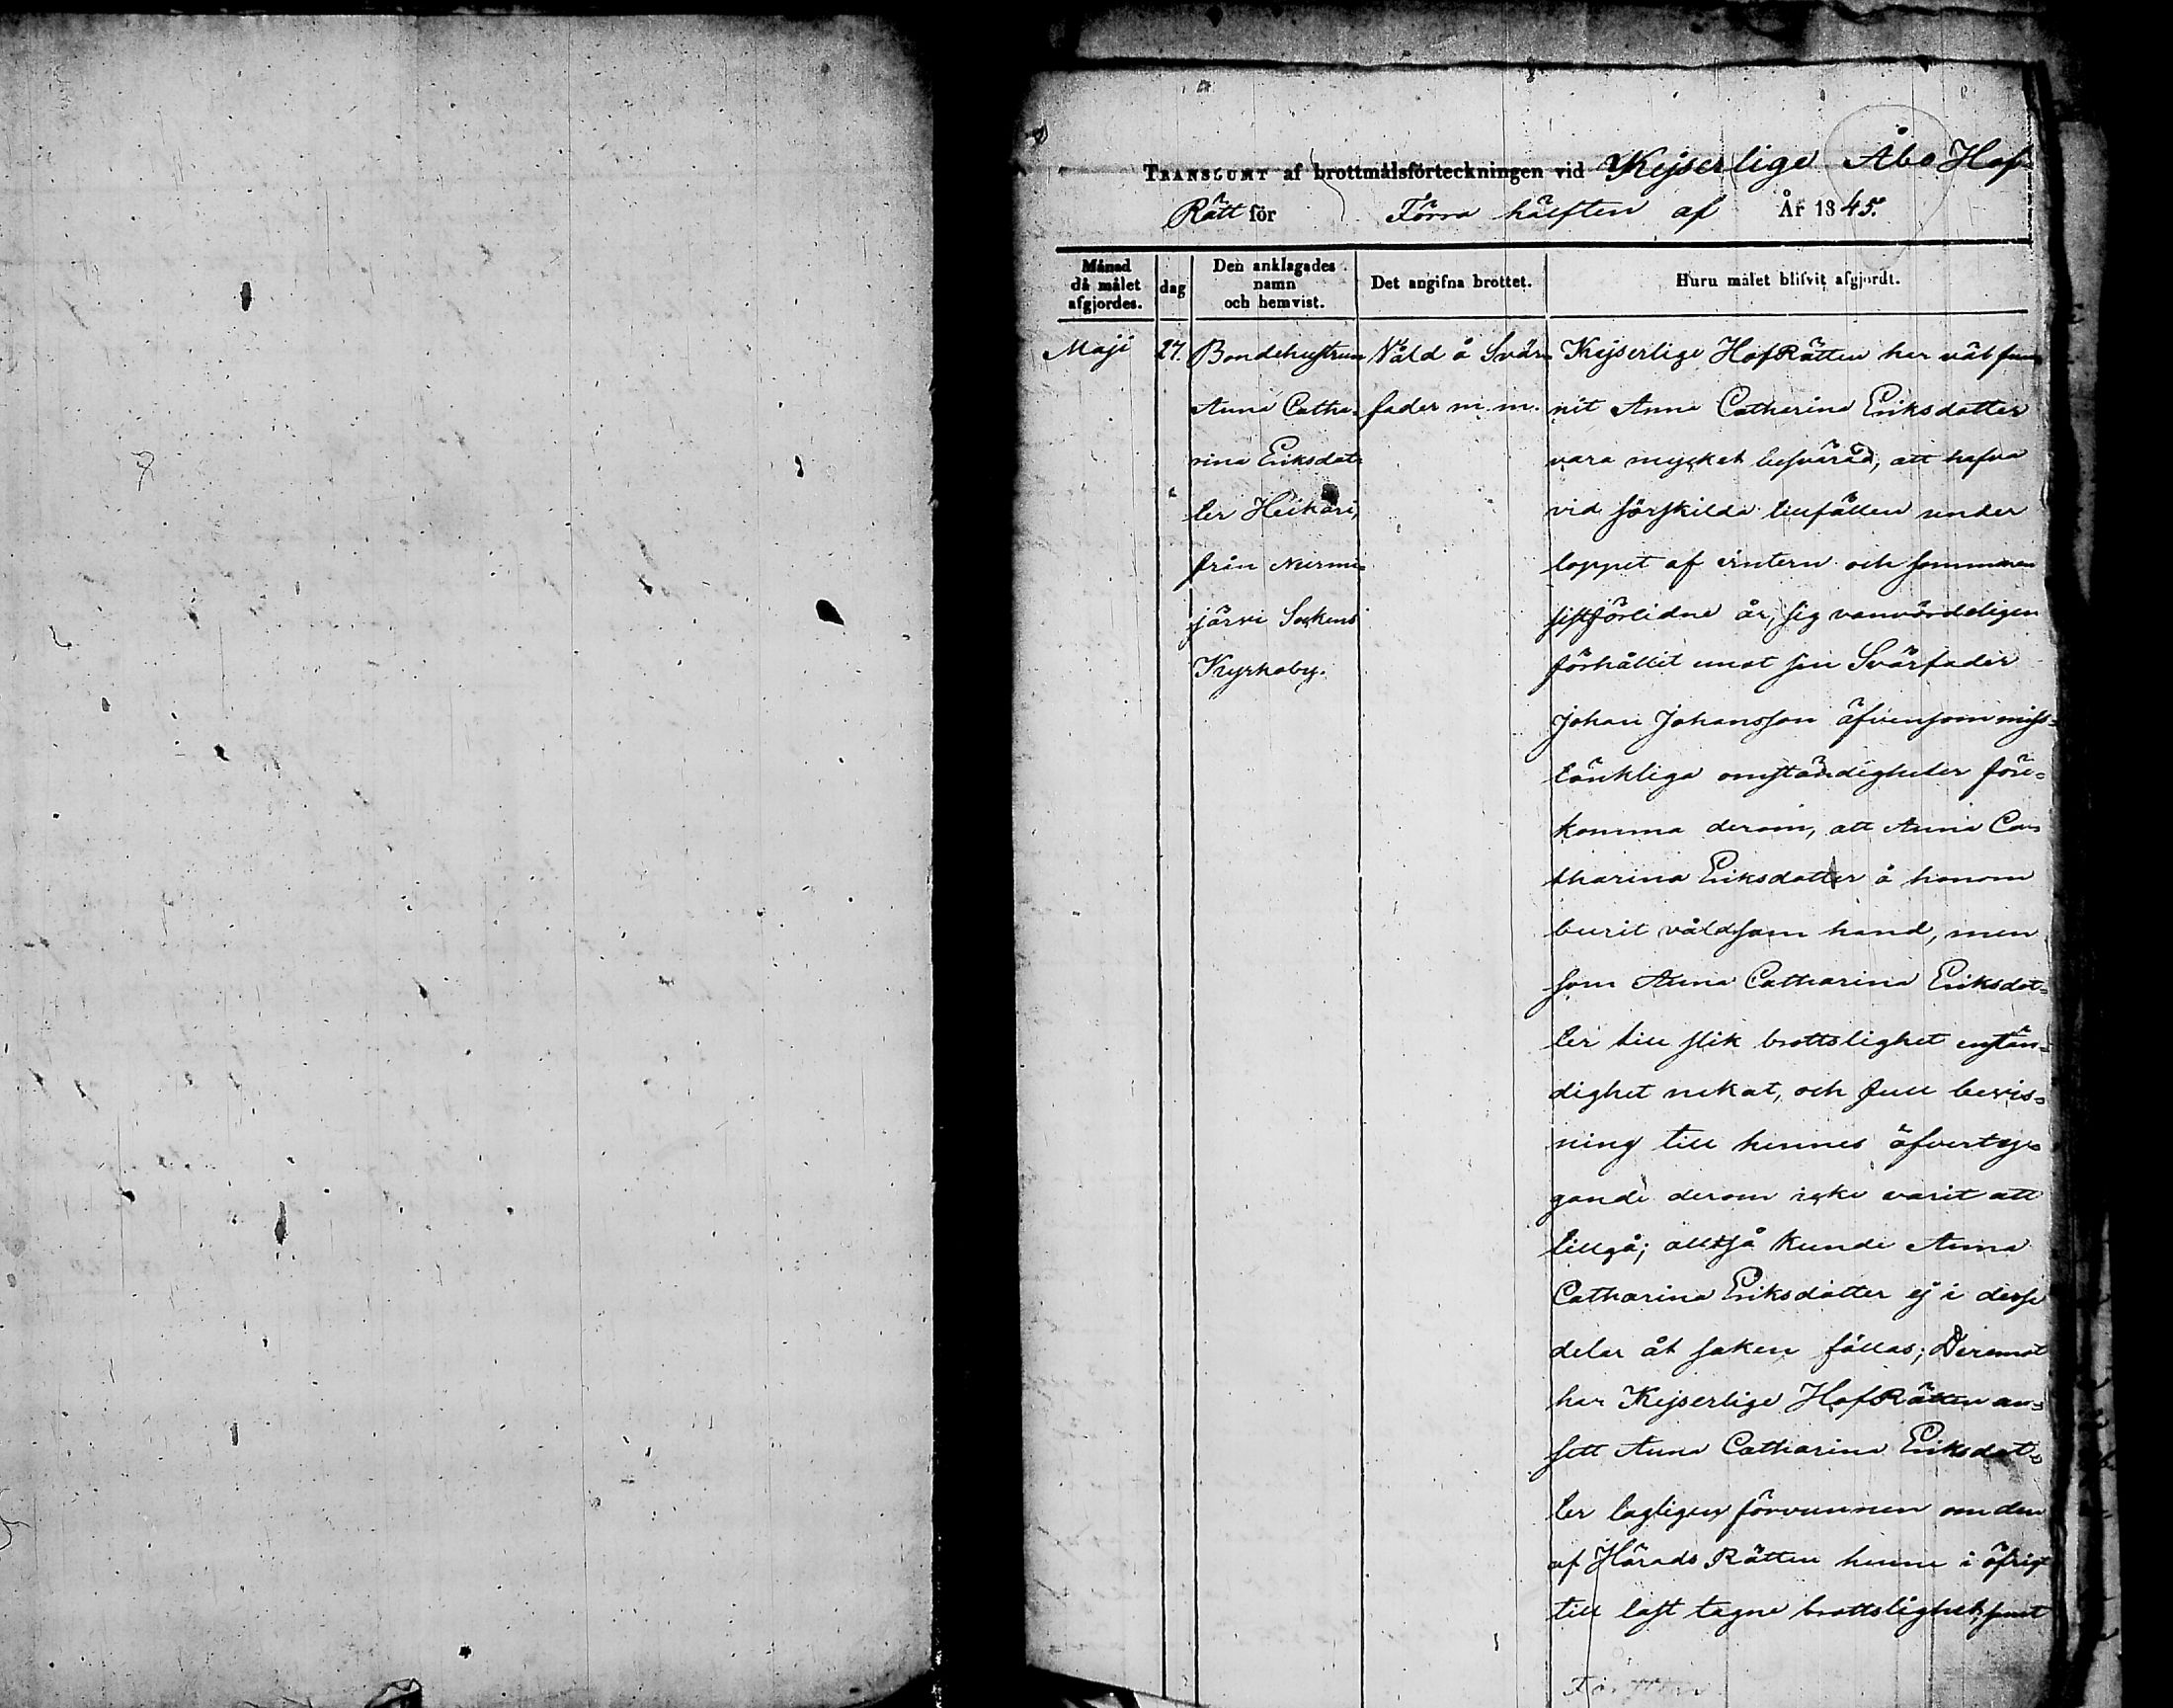 TRANSSUMT af brottmålsförteckningen vid Kejserlige Åbo Hof-
Rätt för Förra hälften af År 1845.
Månad då målet afgjordes.
dag
Den anklagades namn och hemvist.
Det angifna brottet.
Huru målet blifvit afgjordt.
Maji
27.
Bondehustrun
Anna Catha-
rina Eriksdot-
ter Heikari,
från Nurmi-
järvi Sockens
Kyrkoby.
Våld å Svär-
fader m. m.
Kejserlige HofRätten har väl fun-
nit Anna Catharina Eriksdotter
vara mycket besvärad, att hafva
vid särskilda tillfällen under
loppet af vintern och sommaren
sistförlidne år, sig vanvördeligen
förhållit emot sin Svärfader
Johan Johansson äfvensom miss-
tänkliga omständigheter före-
komma derom, att Anna Ca-
tharina Eriksdotter å honom
burit våldsam hand, men
som Anna Catharina Eriksdot-
ter till slik brottslighet enstän-
dighet nekat, och full bevis-
ning till hennes öfverty-
gande derom icke varit att
tillgå; alltså kunde Anna
Catharina Eriksdotter ej i desse
delar åt saken fällas; Deremot
har Kejserlige HofRätten an-
sett Anna Catharina Eriksdot-
ter lagligen förvunnen om den
af Härads Rätten henne i öfrigt
till last tagne brottslighet, samt